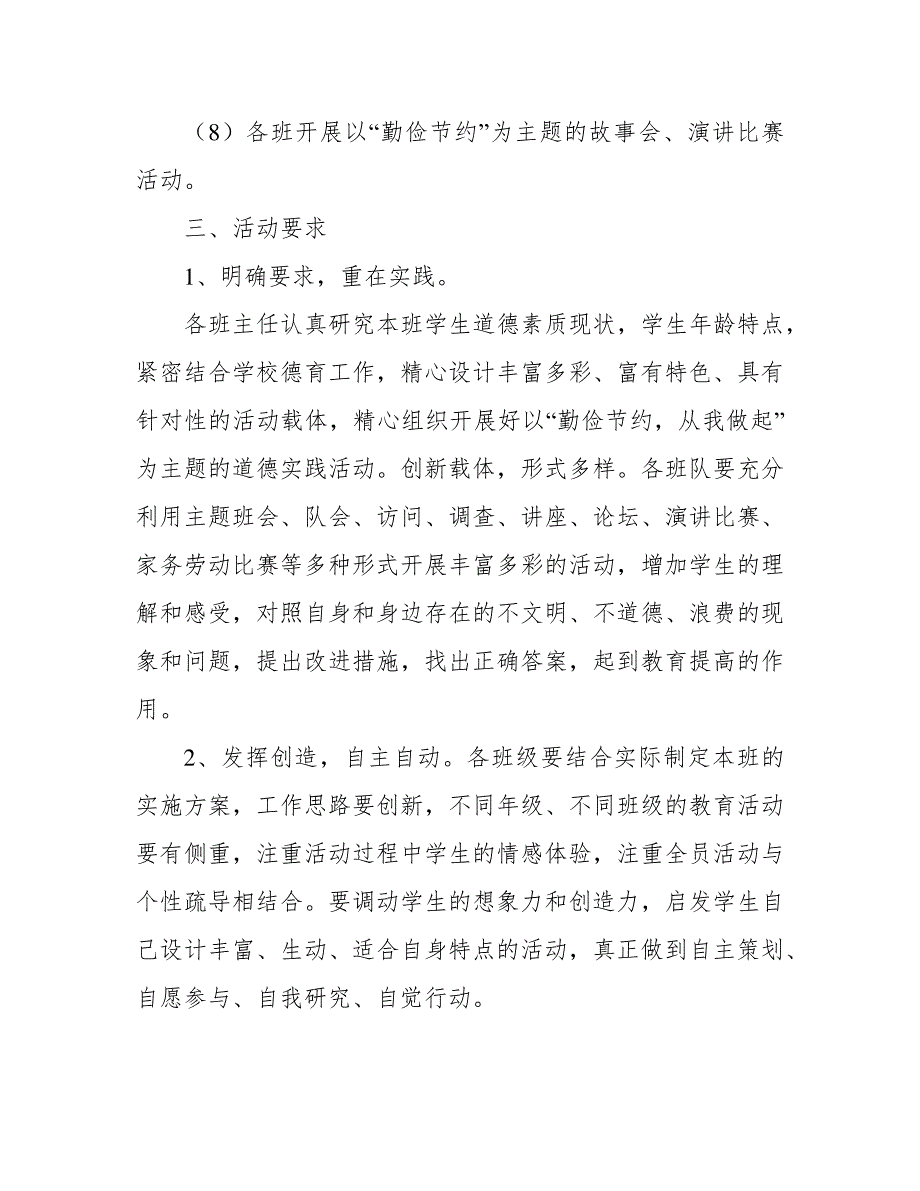 （8）各班开展以“勤俭节约”为主题的故事会、演讲比赛
活动。
三、活动要求
1、明确要求，重在实践。
各班主任认真研究本班学生道德素质现状，学生年龄特点，
紧密结合学校德育工作，精心设计丰富多彩、富有特色、具有
针对性的活动载体，精心组织开展好以“勤俭节约，从我做起”
为主题的道德实践活动。创新载体，形式多样。各班队要充分
利用主题班会、队会、访问、调查、讲座、论坛、演讲比赛、
家务劳动比赛等多种形式开展丰富多彩的活动，增加学生的理
解和感受，对照自身和身边存在的不文明、不道德、浪费的现
象和问题，提出改进措施，找出正确答案，起到教育提高的作
用。
2、发挥创造，自主自动。各班级要结合实际制定本班的
实施方案，工作思路要创新，不同年级、不同班级的教育活动
要有侧重，注重活动过程中学生的情感体验，注重全员活动与
个性疏导相结合。要调动学生的想象力和创造力，启发学生自
己设计丰富、生动、适合自身特点的活动，真正做到自主策划、
自愿参与、自我研究、自觉行动。